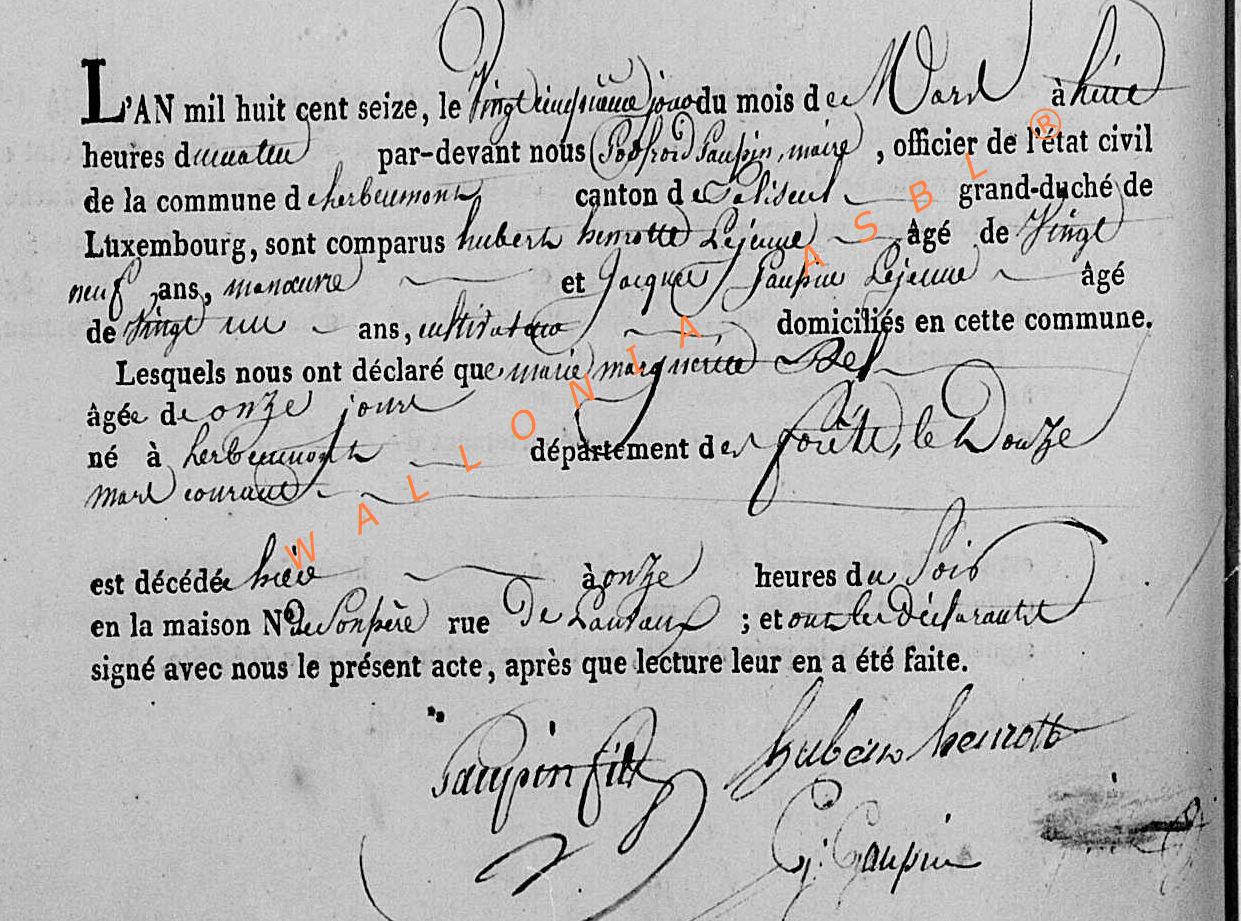 L'AN mil huit cent seize, le Vingt cinquième jour du mois de Mars à huit
heures du matin par-devant nous Godfroid Gaupin, maire, officier de l'état civil
de la commune d'herbeumont canton de Paliseul grand-duché de
Luxembourg, sont comparus hubert henrotte Lejeune âgé de Vingt
neuf ans, manœuvre et Jacques Gaupin Lejeune âgé
de Vingt un ans, cultivateur domiciliés en cette commune.
Lesquels nous ont déclaré que marie marguerite
âgée de onze jours
né à herbeumont département des forêts, le Douze
mars courant
est décédée hier à onze heures du Soir
en la maison No de Son père rue De ; et ont les Déclarants
signé avec nous le présent acte, après que lecture leur en a été faite.
Gaupin fils hubert henrotte
G: Gaupin
WALLONIA ASBL ®